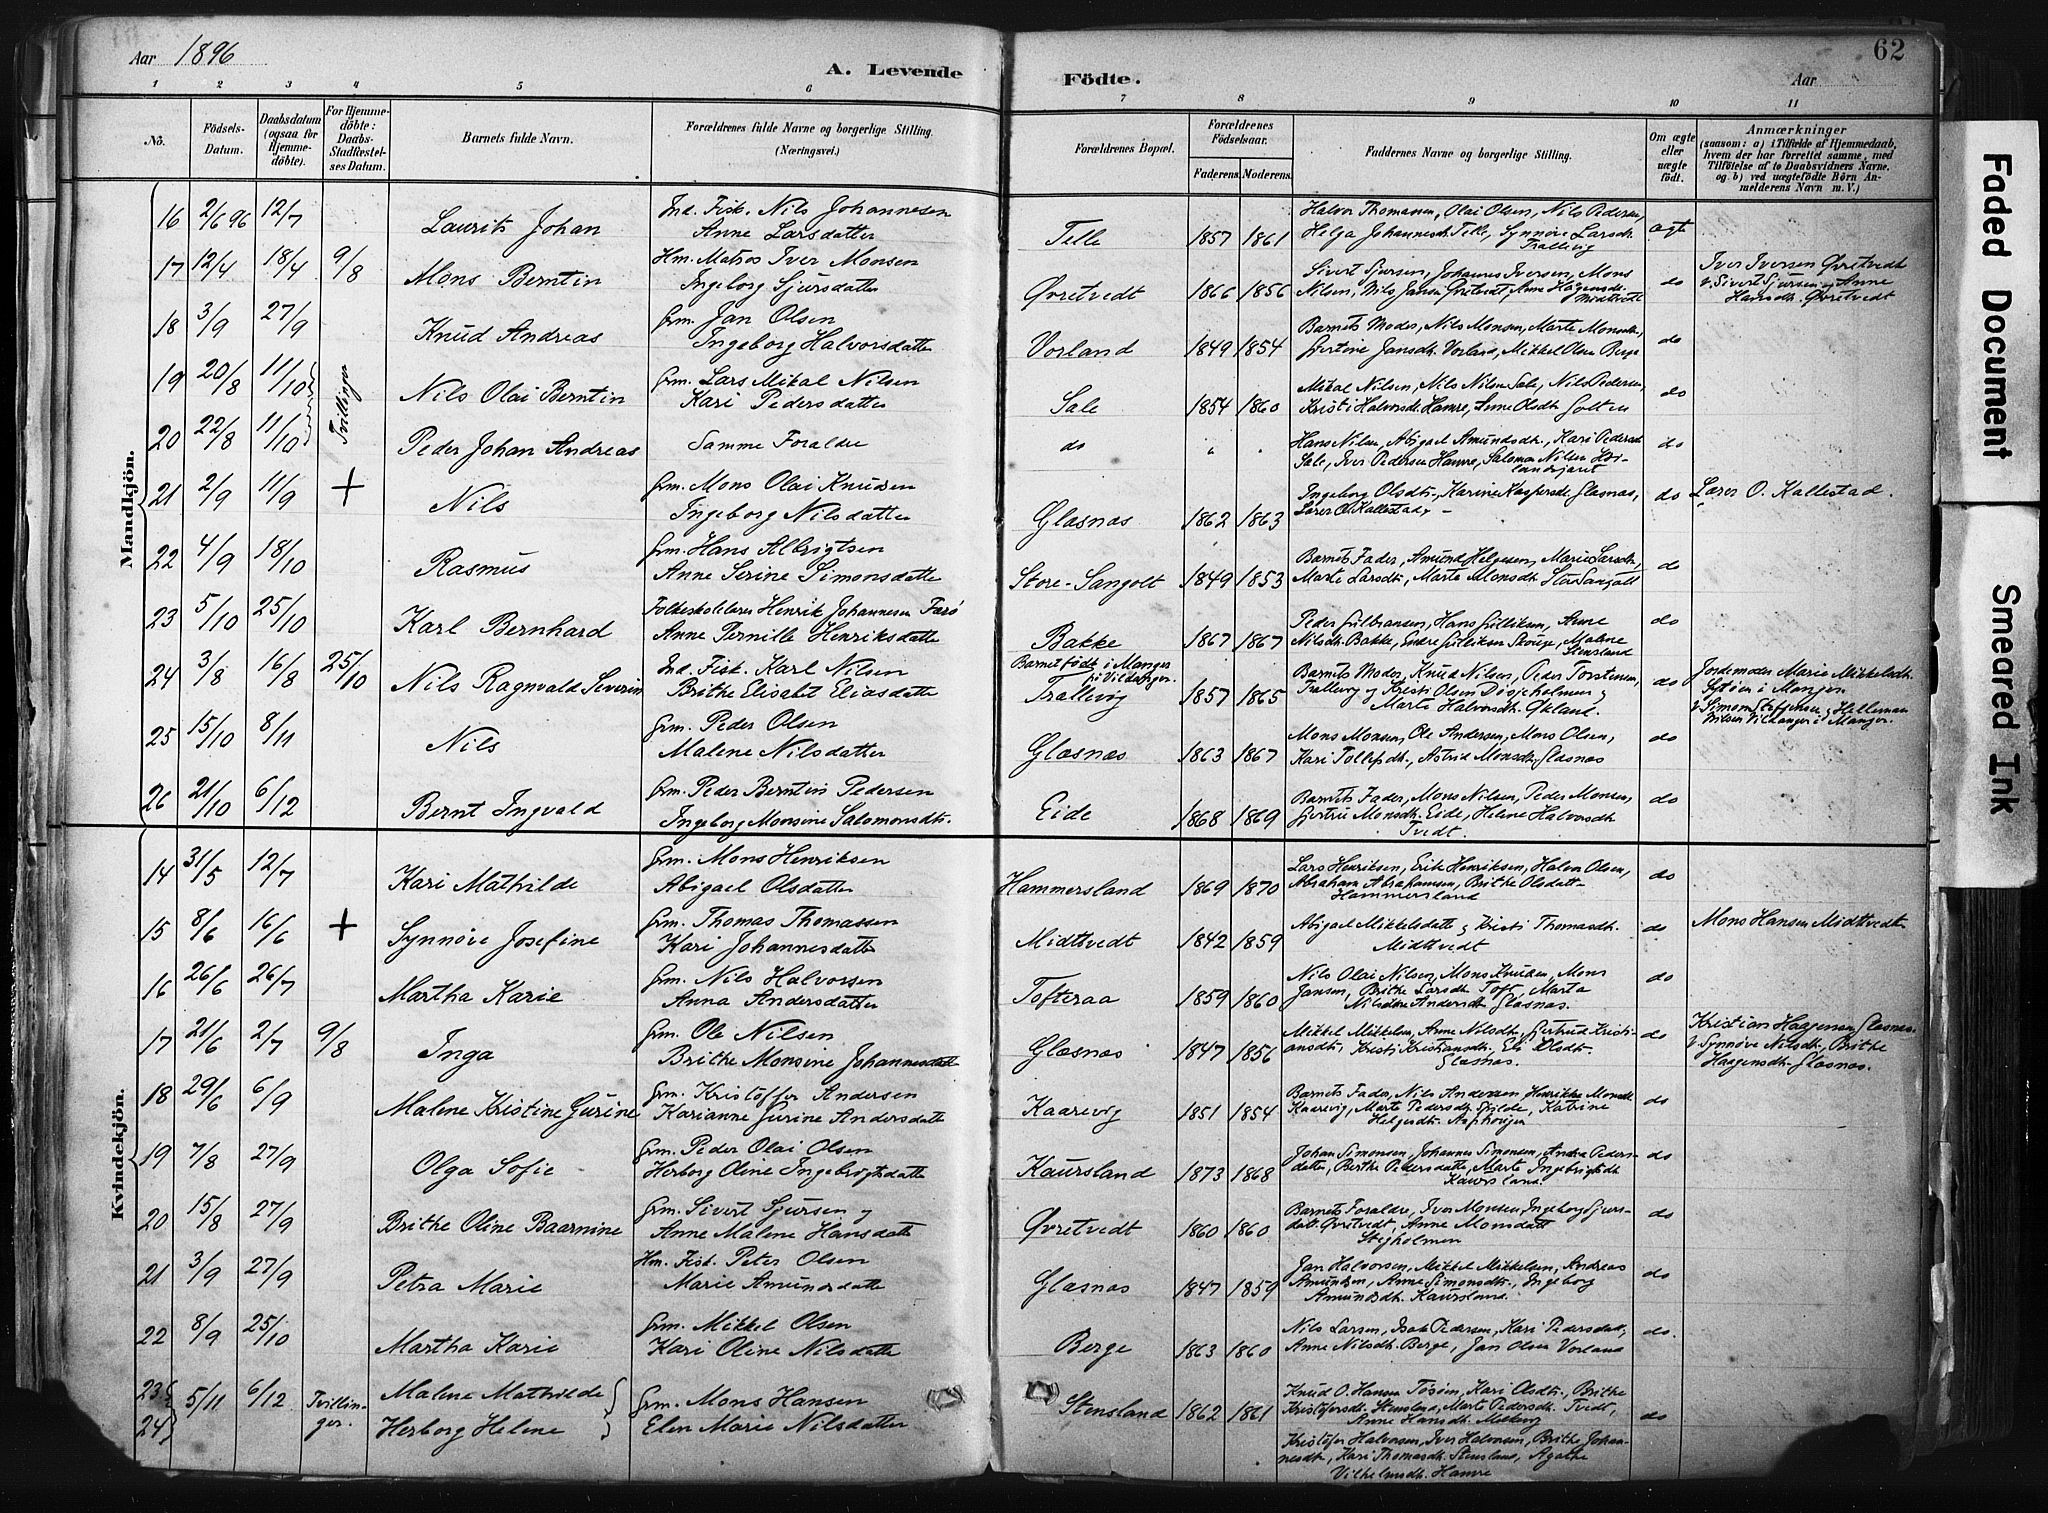 Aar 1896
A. Levende Födte.
Aar
62
1 2 3 4 5 6 7 8 9 10 11
No.
Födsels-Datum.
Daabsdatum (ogsaa for Hjemmedöbte).
For Hjemmedöbte: Daabs-Stadfæstelses Datum.
Barnets fulde Navn.
Forældrenes fulde Navne og borgerlige Stilling. (Næringsvei.)
Forældrenes Bopæl.
Forældrenes Födselsaar.
Faderens. Moderens.
Faddernes Navne og borgerlige Stilling.
Om ægte eller uægte født.
Anmærkninger
(saasom: a) i Tilfælde af Hjemmedaab, hvem der har forrettet samme, med Tilföielse af to Daabsvidners Navne. og b) ved uægtefödte Börn Anmelderens Navn m. V.)
Mandkjön.
16 2/6 96 12/7 Laurits Johan Ind. Fisk. Nils Johannesen Anne Larsdatter Telle 1857 1861 Halvor Thomassen, Olai Olsen, Nils Pedersen, Helga Johannesdt. Telle, Synnøve Larsdt. Trallevig ægte
17 12/4 18/4 9/8 Mons Berntin Hm. Matros Iver Monsen Ingeborg Sjursdatter Øvretvedt 1866 1856 Sivert Sjursen, Johannes Iversen, Mons Nilsen, Nils Jansen Øvretvedt, Anne Midttvedt do Iver Iversen Øvretvedt v. Sivert Sjursen og Anne Hansdt. Øvretvedt
18 3/9 27/9 Knud Andreas Grm. Jan Olsen Ingeborg Halvorsdatter Vorland 1849 1854 Barnets Moder, Nils Monsen, Marte Monsdt., Gjertine Jansdt. Vorland, Mikkel Olsen Berge do
19 20/8 11/10 Tvillinger Nils Olai Berntin Grm. Lars Mikal Nilsen Kari Pedersdatter Sale 1854 1860 Mikal Nilsen, Nils Nilsen Sale, Nils Pedersen, Kristi Halvorsdt. Hamre, Anne Olsdt. Golten do
20 22/8 11/10 Peder Johan Andreas Samme Forældre do " " Hans Nilsen, Abigael Amundsdt., Kari Pedersdt. Sale, Iver Pedersen Hamre, Salomon Nilsen do
21 2/9 11/9 + Nils Grm. Mons Olai Knudsen Ingeborg Nilsdatter Glæsnæs 1862 1863 Ingeborg Olsdt., Karine Kaspersdt. Glæsnæs, Lærer O. Kallestad. do Lærer O. Kallestad.
22 4/9 18/10 Rasmus Grm. Hans Albrigtsen Anne Serine Simonsdatter Store-Sangolt 1849 1853 Barnets Fader, Amund Helgesen, Marie Larsdt., Marte Larsdt., Marte Monsdt. Store Sangolt do
23 5/10 25/10 Karl Bernhard Folkeskolelærer Henrik Johannesen Færø Anne Pernille Henriksdatter Bakke 1867 1867 Peder Gulbransen, Hans Gulliksen, Anne Nilsdt. Bakke, Endre Gulliksen Skouge, Malene Stensland do
24 3/8 16/8 25/10 Nils Ragnvald Severin Ind. Fisk. Karl Nilsen Brithe Elisabet Eliasdatter Barnet født i Manger på Vildanger. Trallevig 1857 1865 Barnets Moder, Knud Nilsen, Peder Torstensen, Trallevig og Kristi Olsen Døsjeholmen og Marta Halvorsdt. Økland. do Jordemoder Marie Mikkelsdt. i Manger v. Simon Steffensen og Nilsen Vildanger i Manger.
25 15/10 8/11 Nils Grm. Peder Olsen Malene Nilsdatter Glæsnæs 1863 1867 Mons Monsen, Ole Andersen, Mons Olsen, Kari Tollefsdt., Astrid Monsdt. Glæsnæs do
26 21/10 6/12 Bernt Ingvald Grm. Peder Berntin Pedersen Ingeborg Monsine Salomonsdtr. Eide 1868 1869 Barnets Fader, Mons Nilsen, Peder Monsen, Gjertru Monsdt. Eide, Helene Halvorsdt. Tvedt. do
Kvindekjön.
14 31/5 12/7 Kari Mathilde Grm. Mons Henriksen Abigael Olsdatter Hammersland 1869 1870 Lars Henriksen, Erik Henriksen, Halvor Olsen, Abraham Abrahamsen, Brithe Olsdatt. Hammersland do
15 8/6 16/6 + Synnøve Josefine Grm. Thomas Thomassen Kari Johannesdatter Midttvedt 1842 1859 Abigael Mikkelsdatter og Kristi Thomasdt. Midttvedt do Mons Hansen Midttvedt
16 26/6 26/7 Martha Karie Grm. Nils Halvorsen Anna Andersdatter Tofteraa 1859 1860 Nils Olai Nilsen, Mons Knudsen, Mons Jansen, Brithe Larsdt. Toft, Marta Andersdt. Glæsnæs. do
17 21/6 2/7 9/8 Inga Grm. Ole Nilsen Brithe Monsine Johannesdatt. Glæsnæs 1847 1856 Mikkel Mikkelsen, Anne Nilsdt., Gjertrud Kristiansdt., Kristi Kristiansdt., Eli Olsdt. Glæsnæs. do Kristian Haagensen Glæsnæs. v. Synnøve Nilsdt., Brithe Haagensdt. Glæsnæs.
18 29/6 6/9 Malene Kristine Gurine Grm. Kristoffer Andersen Karianne Gurine Andersdatt. Kaarevig 1851 1854 Barnets Fader, Nils Andersen, Henrikke Monsdt. Kaarevig, Marte Pedersdt. Spilde, Katrine Helgesdt. do
19 7/8 27/9 Olga Sofie Grm. Peder Olai Olsen Herborg Oline Ingebrigtsdatter Kaursland 1873 1868 Johan Simonsen, Johannes Simonsen, Andrea Pedersdatter, Berthe Pedersdatter, Marte Ingebrigtsdt. Kaursland. do
20 15/8 27/9 Brithe Oline Baarnine Grm. Sivert Sjursen og Anne Malene Hansdatt. Øvretvedt 1860 1860 Barnets Forældre, Iver Monsen, Ingeborg Sjursdatt. Øvretvedt, Anne Monsdatt. Stegholmen do
21 3/9 27/9 Petra Marie Hm. Fisk. Peter Olsen Marie Amundsdatter Glæsnæs 1847 1859 Jan Halvorsen, Mikkel Mikkelsen, Andreas Amundsen, Anne Simonsdt., Ingeborg Amundsdt. Kaursland. do
22 8/9 25/10 Martha Karie Grm. Mikkel Olsen Kari Oline Nilsdatter Berge 1863 1860 Nils Larsen, Isak Pedersen, Kari Pedersdatt., Anne Nilsdt. Berge, Jan Olsen Vorland do.
23 24 5/11 6/12 Tvillinger. Malene Mathilde Herborg Helene Grm. Mons Hansen Elen Marie Nilsdatter Stensland 1862 1861 Knud O. Hansen Tøsøen, Kari Olsdt., Brithe Kristofersdt. Stensland, Marte Pedersdt. Tvedt, Anne Hansdt. do
Kristofer Halvorsen, Iver Halvorsen, Brithe Johannesdt., Kari Thomasdt. Stensland, Agathe Vilhelmsdt. Hamre
Faded Document
Smeared Ink